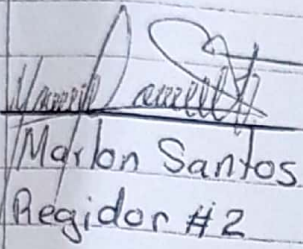 Marlon Santos
Regidor #2